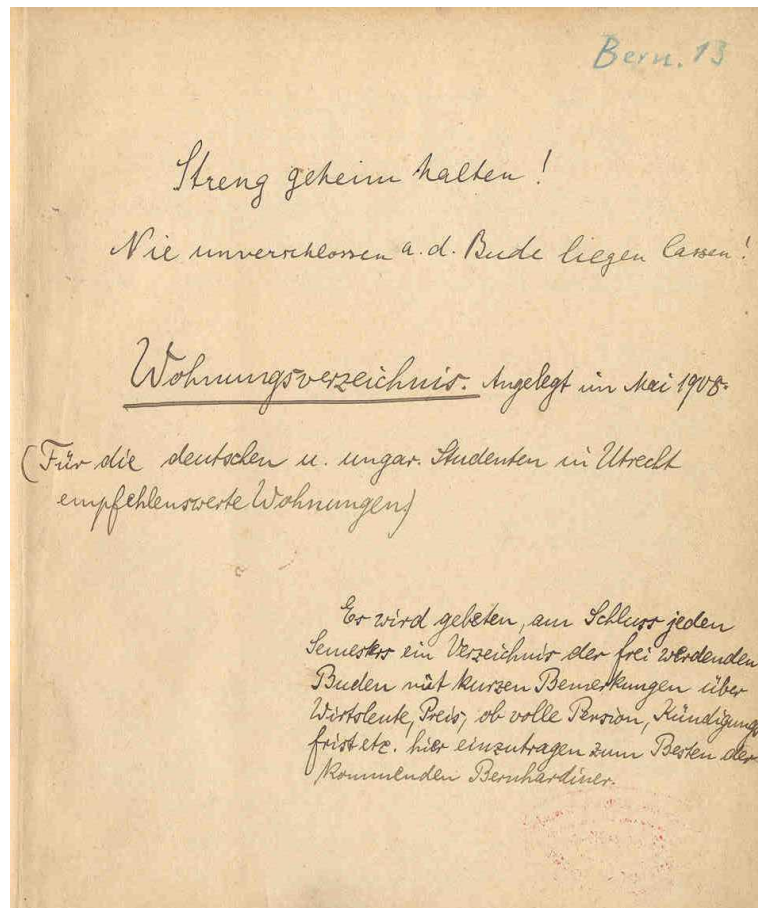 Bern. 13
Streng geheim halten!
Nie unverschlossen a. d. Bude liegen lassen!
Wohnungsverzeichnis. Angelegt im Mai 1908.
(Für die deutschen u. ungar. Studenten in Utrecht
empfehlenswerte Wohnungen)
Es wird gebeten, am Schluss jeden
Semesters ein Verzeichnis der frei werdenden
Buden mit kurzen Bemerkungen über
Wirtsleute, Preis, ob volle Pension, Kündigungs
frist etc. hier einzutragen zum Besten der
kommenden Bernhardiner.